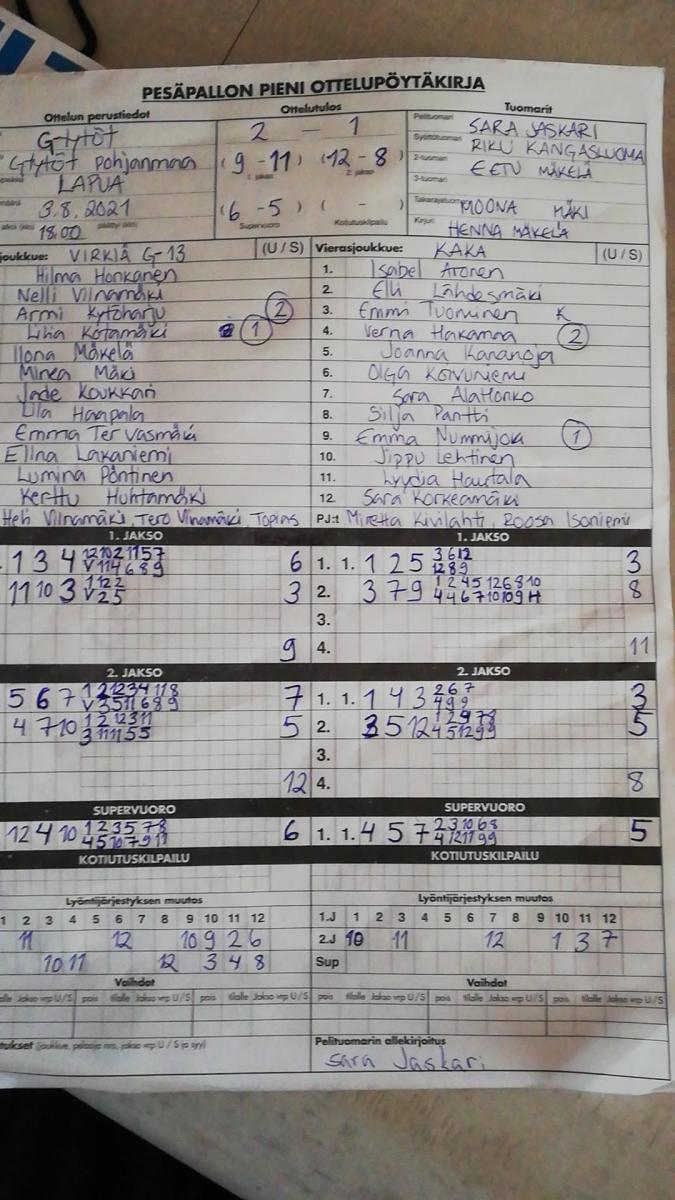 PESÄPALLON PIENI OTTELUPÖYTÄKIRJA
Ottelun perustiedot
Ottelutulos
Tuomarit
G-tytöt
Gtytöt Pohjanmaa
LAPUA
3.8.2021
18.00
2 - 1
(9 - 11) (12 - 8)
1. jakso 2. jakso
(6 - 5) ( - )
Supervuoro Kotiutuskilpailu
Pelituomari SARA JASKARI
Syöttötuomari RIKU KANGASLUOMA
2-tuomari EETU MÄKELÄ
3-tuomari
Takarajatuom MOONA MÄKI
Kirjuri HENNA MÄKELÄ
joukkue: VIRKIÄ G-13 (U / S)
Hilma Honkanen
Nelli Viinamäki
Armi Kytöharju 2
Lilia Kotamäki 1
Ilona Mäkelä
Minea Mäki
Jade Koukkari
Lila Haapala
Emma Tervasmäki
Elina Lakaniemi
Lumina Pöntinen
Kerttu Huhtamäki
Heli Viinamäki, Tero Viinamäki, Topias
Vierasjoukkue: KAKA (U / S)
1. Isabel Aronen
2. Elli Lähdesmäki
3. Emmi Tuominen K
4. Verna Hakamaa 2
5. Joanna Kananoja
6. Olga Koivuniemi
7. Sara Alahonko
8. Silja Pantti
9. Emma Nummijoki 1
10. Jippu Lehtinen
11. Lyydia Hautala
12. Sara Korkeamäki
PJ:t Miretta Kivilahti, Roosa Isoniemi
1. JAKSO
1 3 4 6
11 10 3 3
9
1. JAKSO
1. 1. 1 2 5 3
2. 3 7 9 8
3.
4. 11
2. JAKSO
5 6 7 7
4 7 10 5
12
2. JAKSO
1. 1. 1 4 3 3
2. 3 5 12 5
3.
4. 8
SUPERVUORO
12 4 10 6
SUPERVUORO
1. 1. 4 5 7 5
KOTIUTUSKILPAILU
KOTIUTUSKILPAILU
Lyöntijärjestyksen muutos
1 2 3 4 5 6 7 8 9 10 11 12
11 12 10 9 2 6
10 11 12 3 4 8
Lyöntijärjestyksen muutos
1.J 1 2 3 4 5 6 7 8 9 10 11 12
2.J 10 11 12 1 3 7
Sup
Vaihdot
Jakso vrp U/S pois tilalle Jakso vrp U/S pois tilalle Jakso vrp U/S
Vaihdot
pois tilalle Jakso vrp U/S pois tilalle Jakso vrp U/S pois tilalle Jakso vrp U/S
(joukkue, pelaaja nro, jakso vrp U / S ja syy)
Pelituomarin allekirjoitus
Sara Jaskari